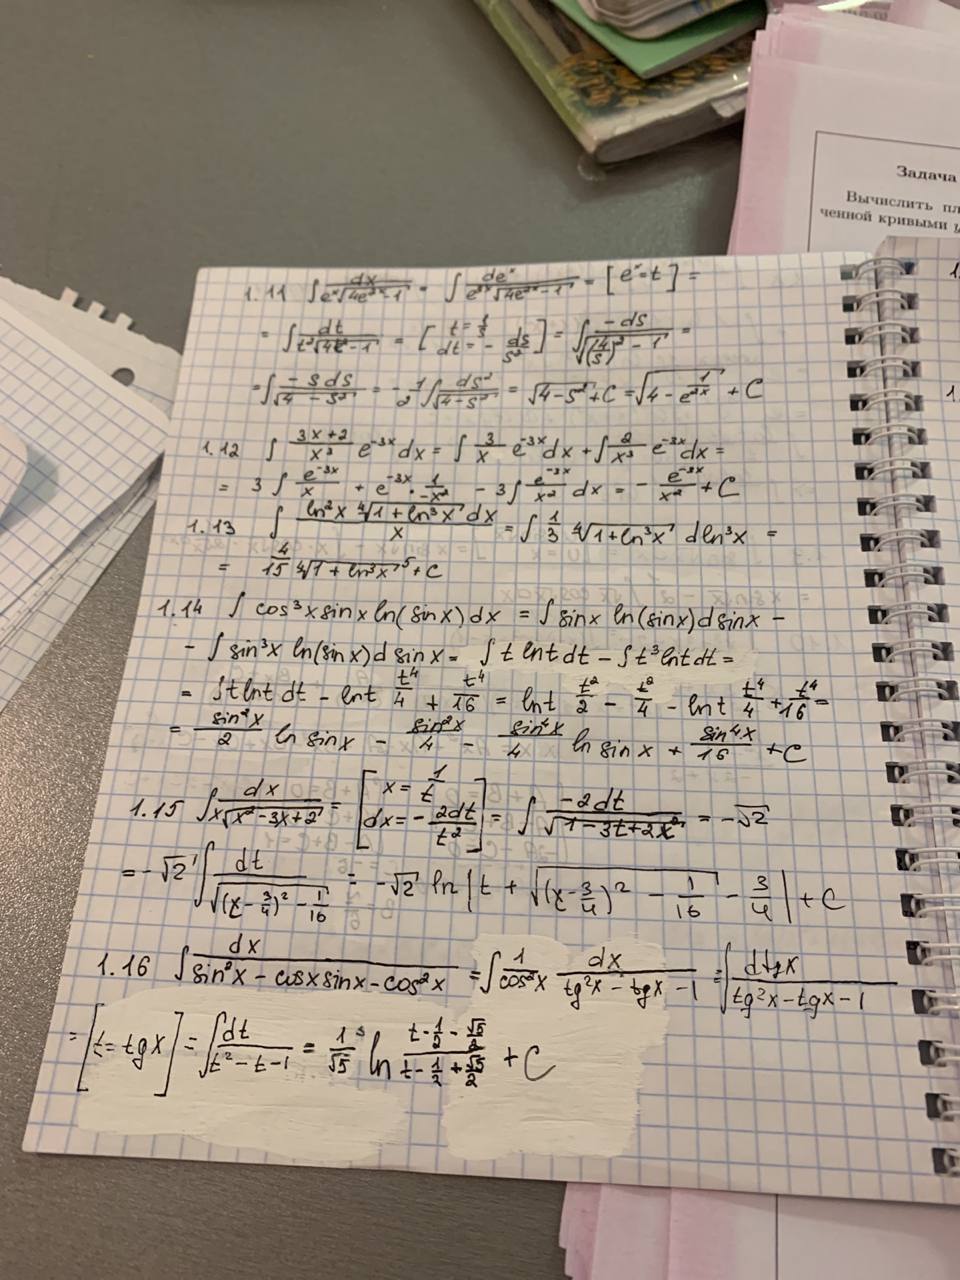 Задача
Вычислить пл
ченной кривыми y
1.11 ∫ dx/(eˣ√(4e²ˣ-1)) = ∫ deˣ/(e²ˣ√(4e²ˣ-1)) = [eˣ=t] =
= ∫ dt/(t²√(4t²-1)) = [t=1/s dt=-ds/s²] = ∫ -ds/√((4/s)²-1) =
= ∫ -sds/√(4-s²) = -1/2 ∫ ds²/√(4-s²) = √(4-s²)+C = √(4-1/e²ˣ) + C
1.12 ∫ (3x+2)/x³ e⁻³ˣ dx = ∫ 3/x e⁻³ˣ dx + ∫ 2/x³ e⁻³ˣ dx =
= 3∫ e⁻³ˣ/x + e⁻³ˣ · 1/-x² - 3∫ e⁻³ˣ/x² dx = - e⁻³ˣ/x² + C
1.13 ∫ ln²x ∜(1+ln³x) dx/x = ∫ 1/3 ∜(1+ln³x) dln³x =
= 4/15 ∜(1+ln³x)⁵ + C
1.14 ∫ cos³x sinx ln(sinx) dx = ∫ sinx ln(sinx) d sinx -
- ∫ sin³x ln(sinx) d sinx = ∫ t lnt dt - ∫ t³ lnt dt =
= ∫ t lnt dt - lnt t⁴/4 + t⁴/16 = lnt t²/2 - t²/4 - lnt t⁴/4 + t⁴/16 =
= sin²x/2 ln sinx - sin²x/4 - sin⁴x/4 ln sinx + sin⁴x/16 + C
1.15 ∫ dx/(x√(x²-3x+2)) = [x=1/t dx=-2dt/t²] = ∫ -2dt/√(1-3t+2t²) = -√2
= -√2 ∫ dt/√((t-3/4)²-1/16) = -√2 ln|t + √((t-3/4)² - 1/16) - 3/4| + C
1.16 ∫ dx/(sin²x - cosx sinx - cos²x) = ∫ 1/cos²x dx/(tg²x - tgx - 1) = ∫ dtgx/(tg²x - tgx - 1)
= [t = tgx] = ∫ dt/(t²-t-1) = 1/√5 ln (t-1/2-√5/2)/(t-1/2+√5/2) + C